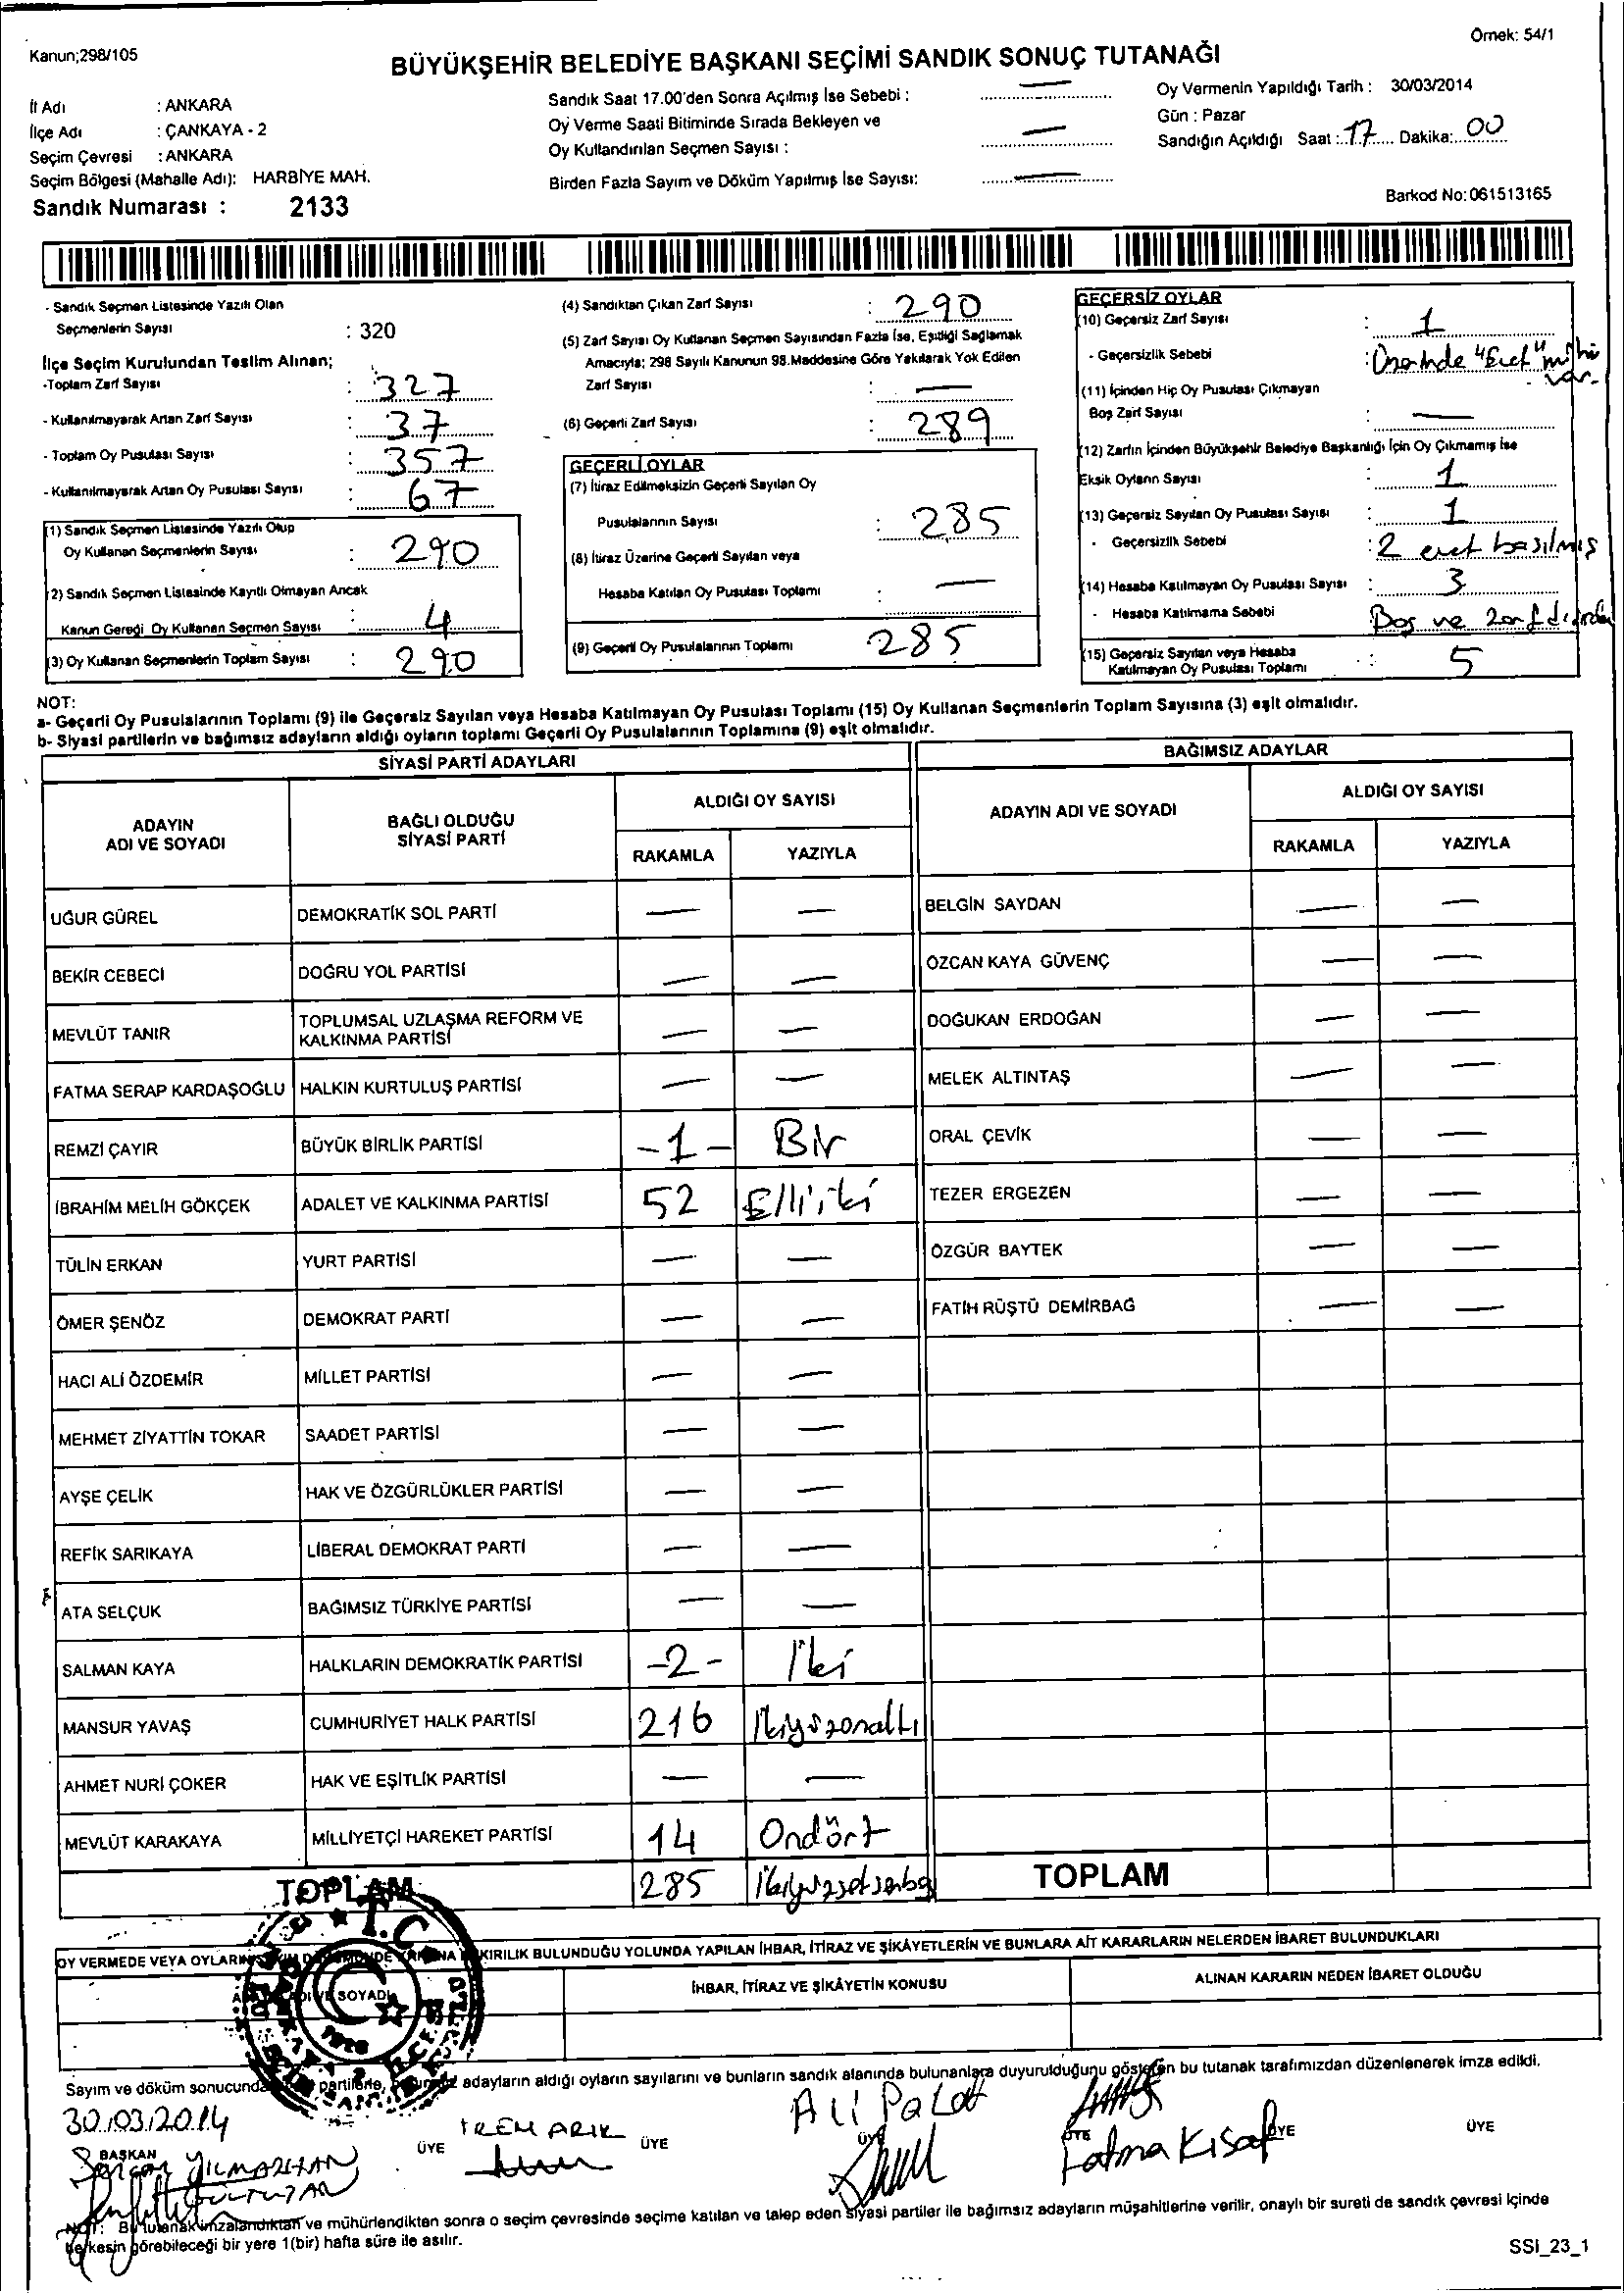 Kanun;298/105
Örnek: 54/1
BÜYÜKŞEHİR BELEDİYE BAŞKANI SEÇİMİ SANDIK SONUÇ TUTANAĞI
İl Adı : ANKARA
İlçe Adı : ÇANKAYA - 2
Seçim Çevresi : ANKARA
Seçim Bölgesi (Mahalle Adı): HARBİYE MAH.
Sandık Numarası : 2133
Sandık Saat 17.00'den Sonra Açılmış İse Sebebi : —
Oy Verme Saati Bitiminde Sırada Bekleyen ve
Oy Kullandırılan Seçmen Sayısı : —
Birden Fazla Sayım ve Döküm Yapılmış İse Sayısı: —
Oy Vermenin Yapıldığı Tarih : 30/03/2014
Gün : Pazar
Sandığın Açıldığı Saat : 17 Dakika: 00
Barkod No: 061513165
- Sandık Seçmen Listesinde Yazılı Olan
Seçmenlerin Sayısı : 320
İlçe Seçim Kurulundan Teslim Alınan;
-Toplam Zarf Sayısı : 327
- Kullanılmayarak Artan Zarf Sayısı : 37
- Toplam Oy Pusulası Sayısı : 357
- Kullanılmayarak Artan Oy Pusulası Sayısı : 67
(1) Sandık Seçmen Listesinde Yazılı Olup
Oy Kullanan Seçmenlerin Sayısı : 290
(2) Sandık Seçmen Listesinde Kayıtlı Olmayan Ancak
Kanun Gereği Oy Kullanan Seçmen Sayısı : 4
(3) Oy Kullanan Seçmenlerin Toplam Sayısı : 290
(4) Sandıktan Çıkan Zarf Sayısı : 290
(5) Zarf Sayısı Oy Kullanan Seçmen Sayısından Fazla İse, Eşitliği Sağlamak
Amacıyla; 298 Sayılı Kanunun 98.Maddesine Göre Yakılarak Yok Edilen
Zarf Sayısı : —
(6) Geçerli Zarf Sayısı : 289
GEÇERLİ OYLAR
(7) İtiraz Edilmeksizin Geçerli Sayılan Oy
Pusulalarının Sayısı : 285
(8) İtiraz Üzerine Geçerli Sayılan veya
Hesaba Katılan Oy Pusulası Toplamı : —
(9) Geçerli Oy Pusulalarının Toplamı 285
GEÇERSİZ OYLAR
(10) Geçersiz Zarf Sayısı : 1
- Geçersizlik Sebebi : Üzerinde "Evet" mührü
var.
(11) İçinden Hiç Oy Pusulası Çıkmayan
Boş Zarf Sayısı : —
(12) Zarfın İçinden Büyükşehir Belediye Başkanlığı İçin Oy Çıkmamış İse
Eksik Oyların Sayısı : 1
(13) Geçersiz Sayılan Oy Pusulası Sayısı : 1
- Geçersizlik Sebebi : 2 evet basılmış
(14) Hesaba Katılmayan Oy Pusulası Sayısı : 3
- Hesaba Katılmama Sebebi Boş ve zarf dışında
(15) Geçersiz Sayılan veya Hesaba
Katılmayan Oy Pusulası Toplamı : 5
NOT:
a- Geçerli Oy Pusulalarının Toplamı (9) ile Geçersiz Sayılan veya Hesaba Katılmayan Oy Pusulası Toplamı (15) Oy Kullanan Seçmenlerin Toplam Sayısına (3) eşit olmalıdır.
b- Siyasi partilerin ve bağımsız adayların aldığı oyların toplamı Geçerli Oy Pusulalarının Toplamına (9) eşit olmalıdır.
SİYASİ PARTİ ADAYLARI
ADAYIN ADI VE SOYADI BAĞLI OLDUĞU SİYASİ PARTİ ALDIĞI OY SAYISI
RAKAMLA YAZIYLA
UĞUR GÜREL DEMOKRATİK SOL PARTİ — —
BEKİR CEBECİ DOĞRU YOL PARTİSİ — —
MEVLÜT TANIR TOPLUMSAL UZLAŞMA REFORM VE KALKINMA PARTİSİ — —
FATMA SERAP KARDAŞOĞLU HALKIN KURTULUŞ PARTİSİ — —
REMZİ ÇAYIR BÜYÜK BİRLİK PARTİSİ -1- Bir
İBRAHİM MELİH GÖKÇEK ADALET VE KALKINMA PARTİSİ 52 Elliiki
TÜLİN ERKAN YURT PARTİSİ — —
ÖMER ŞENÖZ DEMOKRAT PARTİ — —
HACI ALİ ÖZDEMİR MİLLET PARTİSİ — —
MEHMET ZİYATTİN TOKAR SAADET PARTİSİ — —
AYŞE ÇELİK HAK VE ÖZGÜRLÜKLER PARTİSİ — —
REFİK SARIKAYA LİBERAL DEMOKRAT PARTİ — —
ATA SELÇUK BAĞIMSIZ TÜRKİYE PARTİSİ — —
SALMAN KAYA HALKLARIN DEMOKRATİK PARTİSİ -2- İki
MANSUR YAVAŞ CUMHURİYET HALK PARTİSİ 216 İkiyüzonaltı
AHMET NURİ ÇOKER HAK VE EŞİTLİK PARTİSİ — —
MEVLÜT KARAKAYA MİLLİYETÇİ HAREKET PARTİSİ 14 Ondört
TOPLAM 285
BAĞIMSIZ ADAYLAR
ADAYIN ADI VE SOYADI ALDIĞI OY SAYISI
RAKAMLA YAZIYLA
BELGİN SAYDAN — —
ÖZCAN KAYA GÜVENÇ — —
DOĞUKAN ERDOĞAN — —
MELEK ALTINTAŞ — —
ORAL ÇEVİK — —
TEZER ERGEZEN — —
ÖZGÜR BAYTEK — —
FATİH RÜŞTÜ DEMİRBAĞ — —
TOPLAM
T.C
OY VERMEDE VEYA OYLARIN BULUNDUĞU YOLUNDA YAPILAN İHBAR, İTİRAZ VE ŞİKÂYETLERİN VE BUNLARA AİT KARARLARIN NELERDEN İBARET BULUNDUKLARI
SOYADI İHBAR, İTİRAZ VE ŞİKÂYETİN KONUSU ALINAN KARARIN NEDEN İBARET OLDUĞU
Sayım ve döküm sonucunda adayların aldığı oyların sayılarını ve bunların sandık alanında bulunanlara duyurulduğunu gösteren bu tutanak tarafımızdan düzenlenerek imza edildi.
30/03/2014
İREM ARIK
Ali Polat
Fatma Kısa
BAŞKAN ÜYE ÜYE ÜYE ÜYE ÜYE ÜYE
NOT: Bu tutanak imzalandıktan ve mühürlendikten sonra o seçim çevresinde seçime katılan ve talep eden siyasi partiler ile bağımsız adayların müşahitlerine verilir, onaylı bir sureti de sandık çevresi içinde
herkesin görebileceği bir yere 1(bir) hafta süre ile asılır.
SSİ_23_1